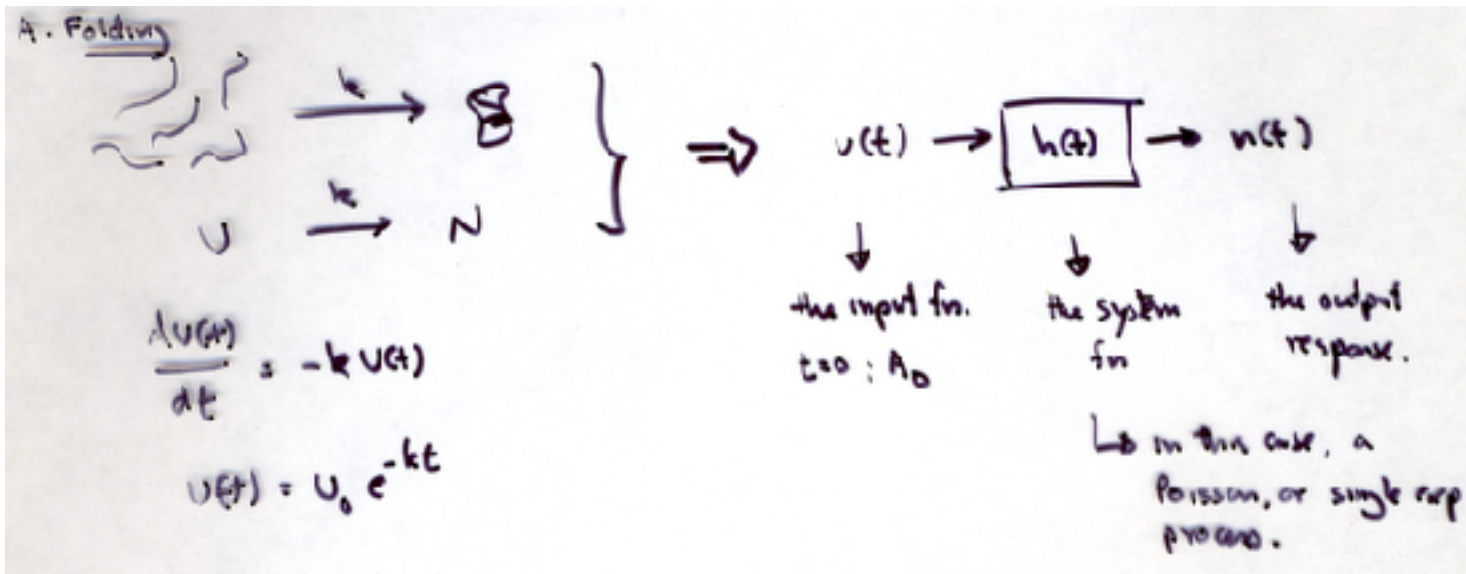 A. Folding
k
U k N
dU(t)/dt = -k U(t)
U(t) = U₀ e^{-kt}
⇒ u(t) → h(t) → n(t)
the input fn.
t=0 : A₀
the system
fn
the output
response.
↳ in this case, a
Poisson, or single exp
process.